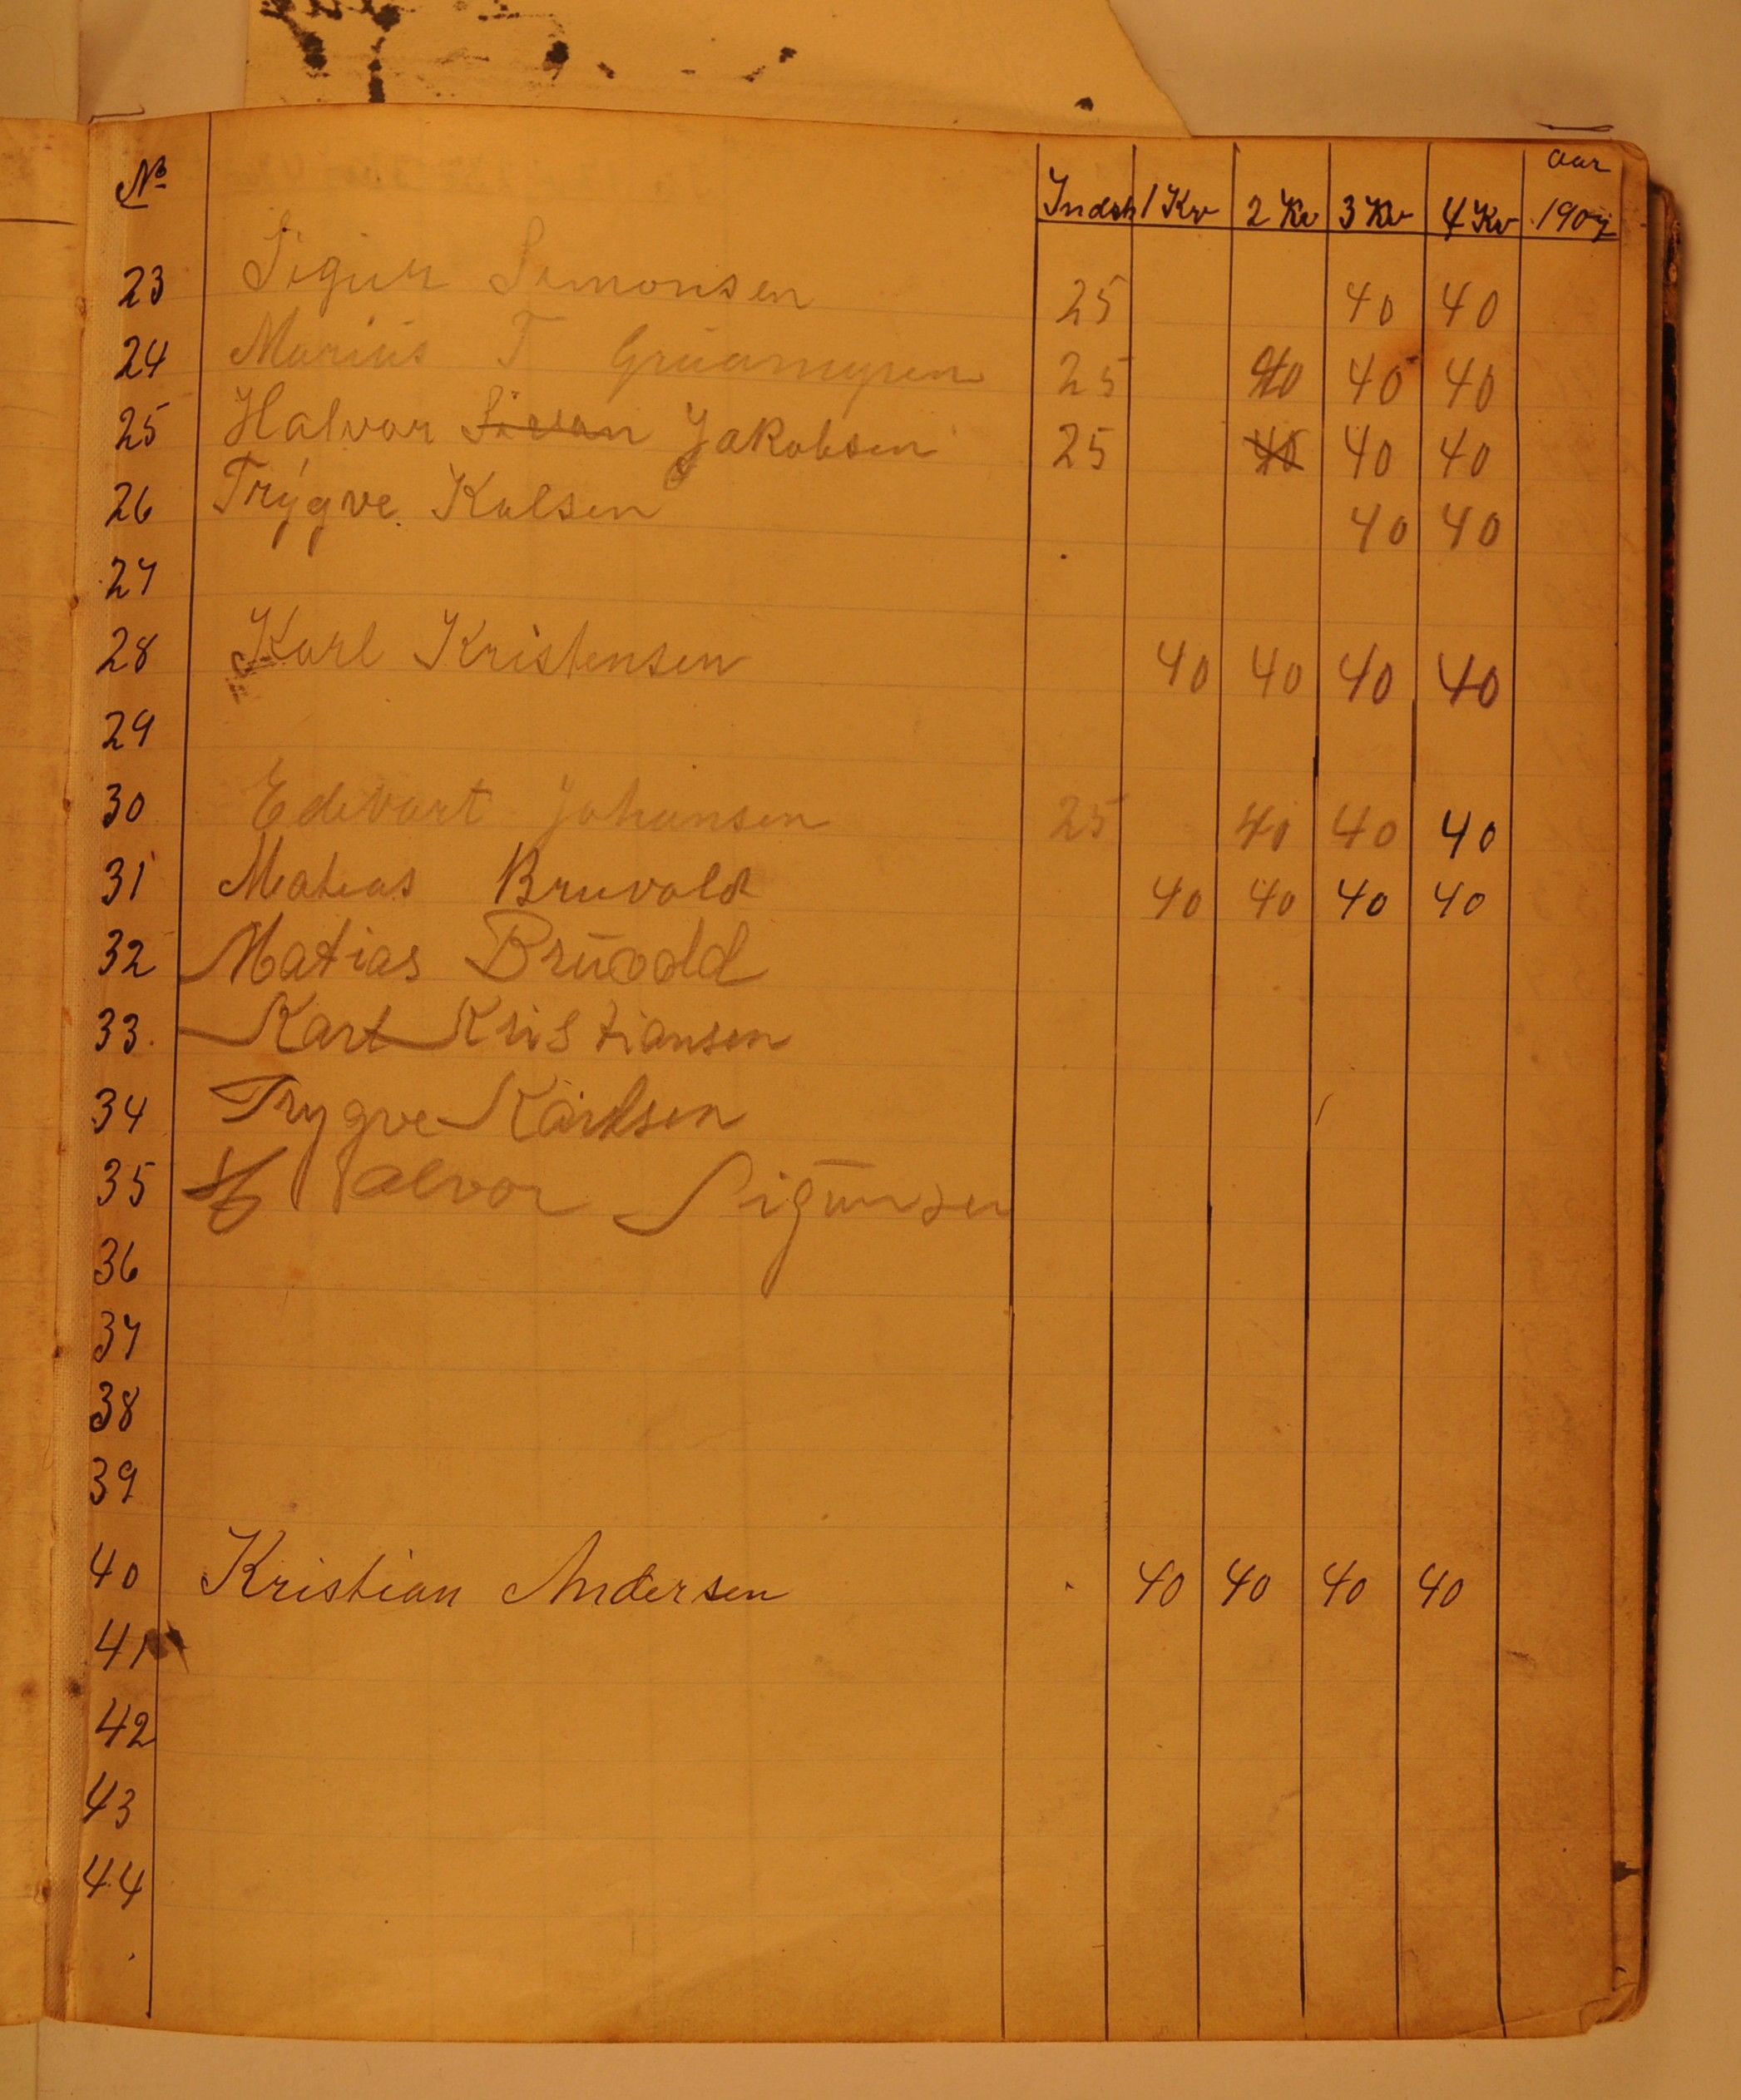 № Indsk 1 Kv 2 Kv 3 Kv 4 Kv aar 1907
23 Sigur Simonsen 25 40 40
24 Marius T Gruamyren 25 40 40 40
25 Halvor Jakobsen 25 40 40 40
26 Trygve Kalsen 40 40
27
28 Karl Kristensen 40 40 40 40
29
30 Edevart Johansen 25 40 40 40
31 Matias Bruvold 40 40 40 40
32 Matias Bruvold
33 Karl Kristiansen
34 Trygve Karlsen
35 Halvor
36
37
38
39
40 Kristian Andersen 40 40 40 40
41
42
43
44